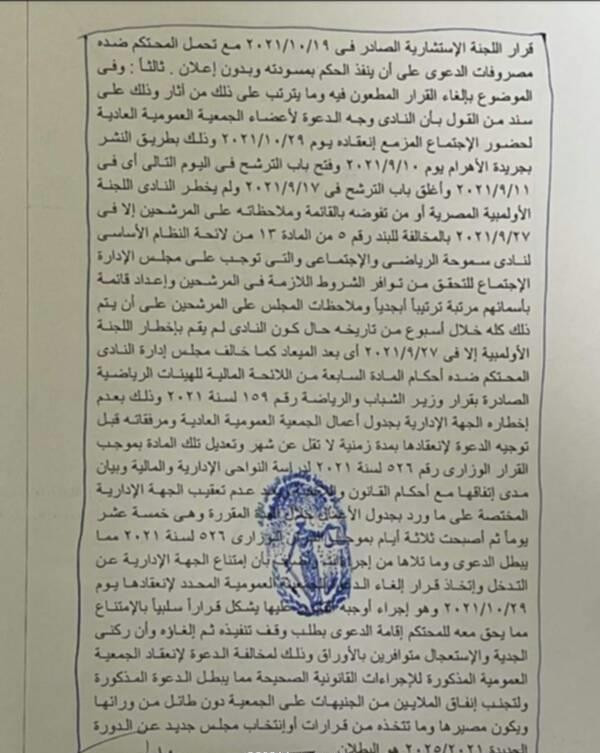 قرار اللجنة الإستشارية الصادر فى ٢٠٢١/١٠/١٩ مع تحمل المحتكم ضده
مصروفات الدعوى على أن ينفذ الحكم بمسودته وبدون إعلان . ثالثاً : وفى
الموضوع بإلغاء القرار المطعون فيه وما يترتب على ذلك من أثار وذلك على
سند من القول بأن النادى وجه الدعوة لأعضاء الجمعية العمومية العادية
لحضور الإجتماع المزمع إنعقاده يوم ٢٠٢١/١٠/٢٩ وذلك بطريق النشر
بجريدة الأهرام يوم ٢٠٢١/٩/١٠ وفتح باب الترشح فى اليوم التالى أى فى
٢٠٢١/٩/١١ وأغلق باب الترشح فى ٢٠٢١/٩/١٧ ولم يخطر النادى اللجنة
الأولمبية المصرية أو من تفوضه بالقائمة وملاحظاته على المرشحين إلا فى
٢٠٢١/٩/٢٧ بالمخالفة للبند رقم ٥ من المادة ١٣ من لائحة النظام الأساسى
لنادى سموحة الرياضى والإجتماعى والتى توجب على مجلس الإدارة
الإجتماع للتحقق من توافر الشروط اللازمة فى المرشحين وإعداد قائمة
بأسمائهم مرتبة ترتيباً أبجدياً وملاحظات المجلس على المرشحين على أن يتم
ذلك كله خلال أسبوع من تاريخه حال كون النادى لم يقم بإخطار اللجنة
الأولمبية إلا فى ٢٠٢١/٩/٢٧ أى بعد الميعاد كما خالف مجلس إدارة النادى
المحتكم ضده أحكام المادة السابعة من اللائحة المالية للهيئات الرياضية
الصادرة بقرار وزير الشباب والرياضة رقم ١٥٩ لسنة ٢٠٢١ وذلك بعدم
إخطاره الجهة الإدارية بجدول أعمال الجمعية العمومية العادية ومرفقاته قبل
توجيه الدعوة لإنعقادها بمدة زمنية لا تقل عن شهر وتعديل تلك المادة بموجب
القرار الوزارى رقم ٥٢٦ لسنة ٢٠٢١ لدراسة النواحى الإدارية والمالية وبيان
مدى إتفاقها مع أحكام القانون عدم تعقيب الجهة الإدارية
المختصة على ما ورد بجدول الأعمال خلال المقررة وهى خمسة عشر
يوماً ثم أصبحت ثلاثة أيام بموجب الوزارى ٥٢٦ لسنة ٢٠٢١ مما
يبطل الدعوى وما تلاها من إجراءات بأن إمتناع الجهة الإدارية عن
التدخل وإتخاذ قرار إلغاء العمومية المحدد لإنعقادها يوم
٢٠٢١/١٠/٢٩ وهو إجراء أوجبه عليها يشكل قراراً سلبياً بالإمتناع
مما يحق معه للمحتكم إقامة الدعوى بطلب وقف تنفيذه ثم إلغاؤه وأن ركنى
الجدية والإستعجال متوافرين بالأوراق وذلك لمخالفة الدعوة لإنعقاد الجمعية
العمومية المذكورة للإجراءات القانونية الصحيحة مما يبطل الدعوة المذكورة
ولتجنب إنفاق الملايين من الجنيهات على الجمعية دون طائل من ورائها
ويكون مصيرها وما تتخذه من قرارات أوإنتخاب مجلس جديد عن الدورة
الجديدة ٢٠٢٥/٢٠٢١ هو البطلان